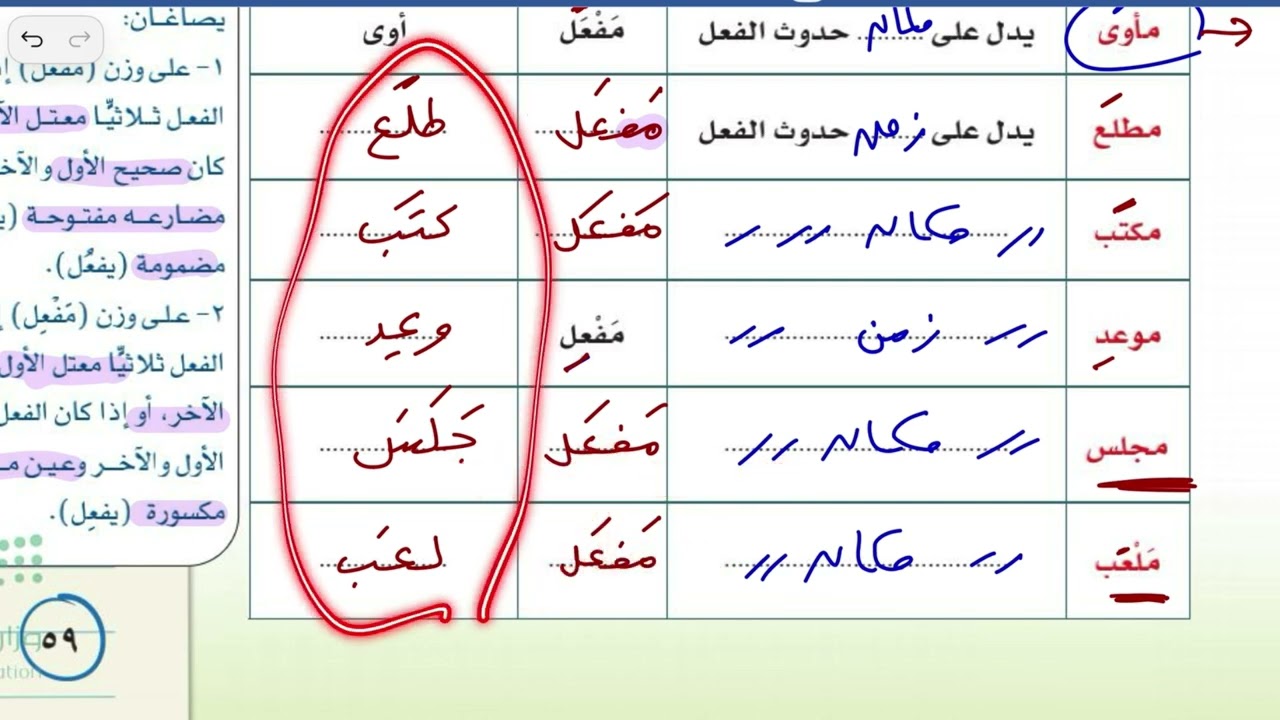 مأوى يدل على مكان حدوث الفعل مَفْعَل أوى
مطلَع يدل على زمن حدوث الفعل مَفعَل طلَع
مكتَب 〃 مكان 〃 〃 مَفعَل كتَب
موعدِ 〃 زمن 〃 مَفْعِل وعد
مجلس 〃 مكان 〃 مَفعَل جَلَسَ
مَلْعَب 〃 مكان 〃 مَفعَل لعَب
يصاغان:
١- على وزن (مَفْعَل) إ
الفعل ثلاثيًّا معتل الآ
كان صحيح الأول والآخ
مضارعه مفتوحة (ي
مضمومة (يفعُل).
٢- على وزن (مَفْعِل) إ
الفعل ثلاثيًّا معتل الأول
الآخر، أو إذا كان الفعل
الأول والآخر وعين مـ
مكسورة (يفعِل).
٥٩